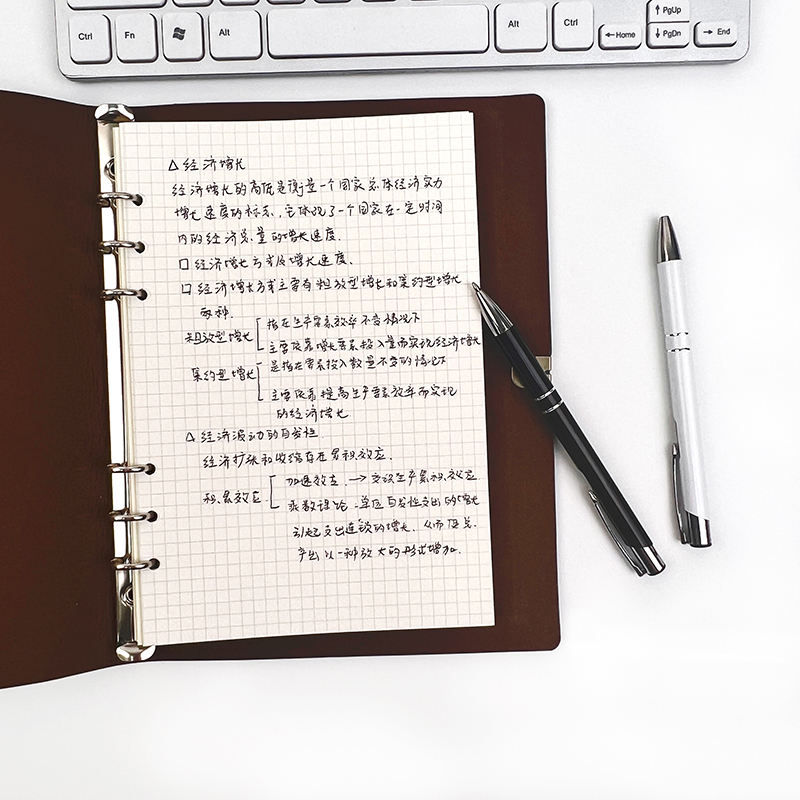 Ctrl Fn Alt Alt Ctrl Home PgUp PgDn End
△ 经济增长
经济增长的高低是衡量一个国家总体经济实力
增长速度的标志,它体现了一个国家在一定时间
内的经济总量的增长速度.
□ 经济增长方式及增长速度.
□ 经济增长方式主要有粗放型增长和集约型增长
两种.
粗放型增长 指在生产要素效率不变情况下
主要依靠增长要素投入量而实现经济增长
集约型增长 是指在要素投入数量不变的情况下
主要依靠提高生产要素效率而实现
的经济增长.
△ 经济波动的自发性.
经济扩张和收缩存在累积效应.
积累效应 加速效应 → 生产累积效应
乘数理论 单位自发性支出的增长
引起支出连锁的增长. 从而使总
产出以一种放大的形式增加.